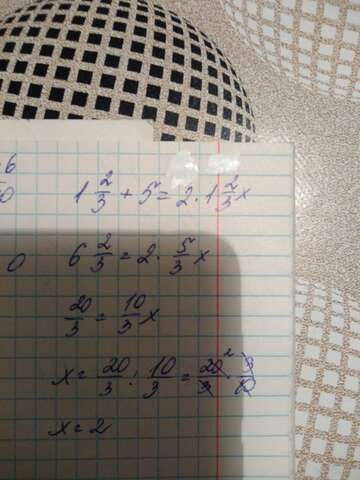 6
0
1 2/3 + 5 = 2 · 1 2/3 x
0
6 2/3 = 2 · 5/3 x
20/3 = 10/3 x
x = 20/3 : 10/3 = 20/3 2 · 3/10
x = 2